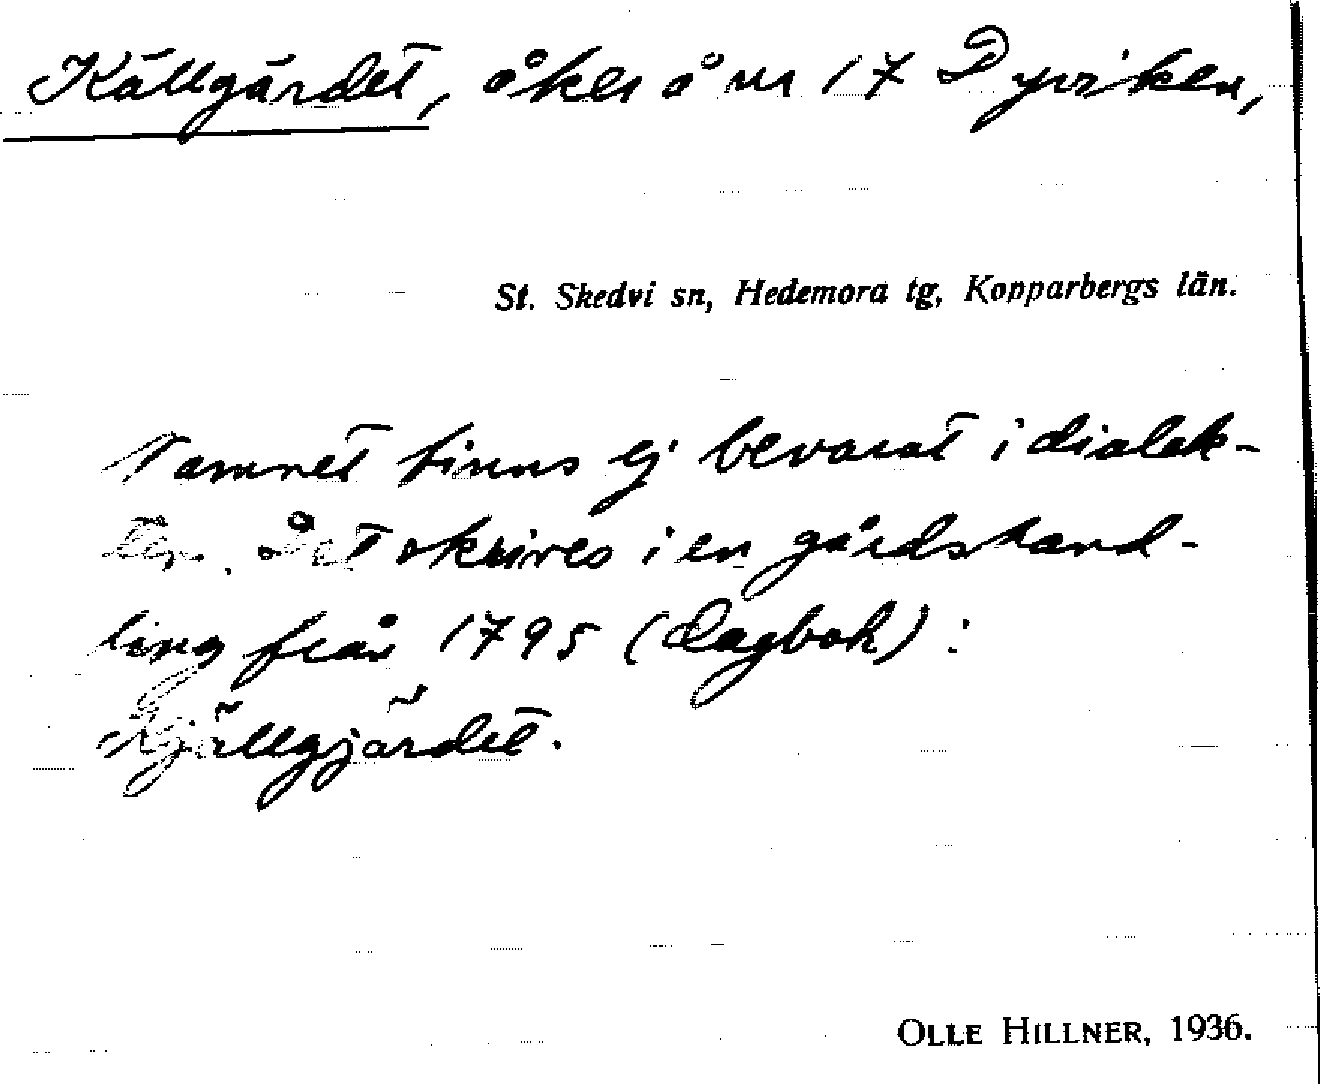 Källgärdet, åker å nr 17 Dyviken,
St. Skedvi sn, Hedemora tg, Kopparbergs län.
Namnet finns ej bevarat i dialek-
ten. Det skrives i en gårdshand-
ling från 1795 (dagbok):
Kjällgjärdet.
OLLE HILLNER, 1936.